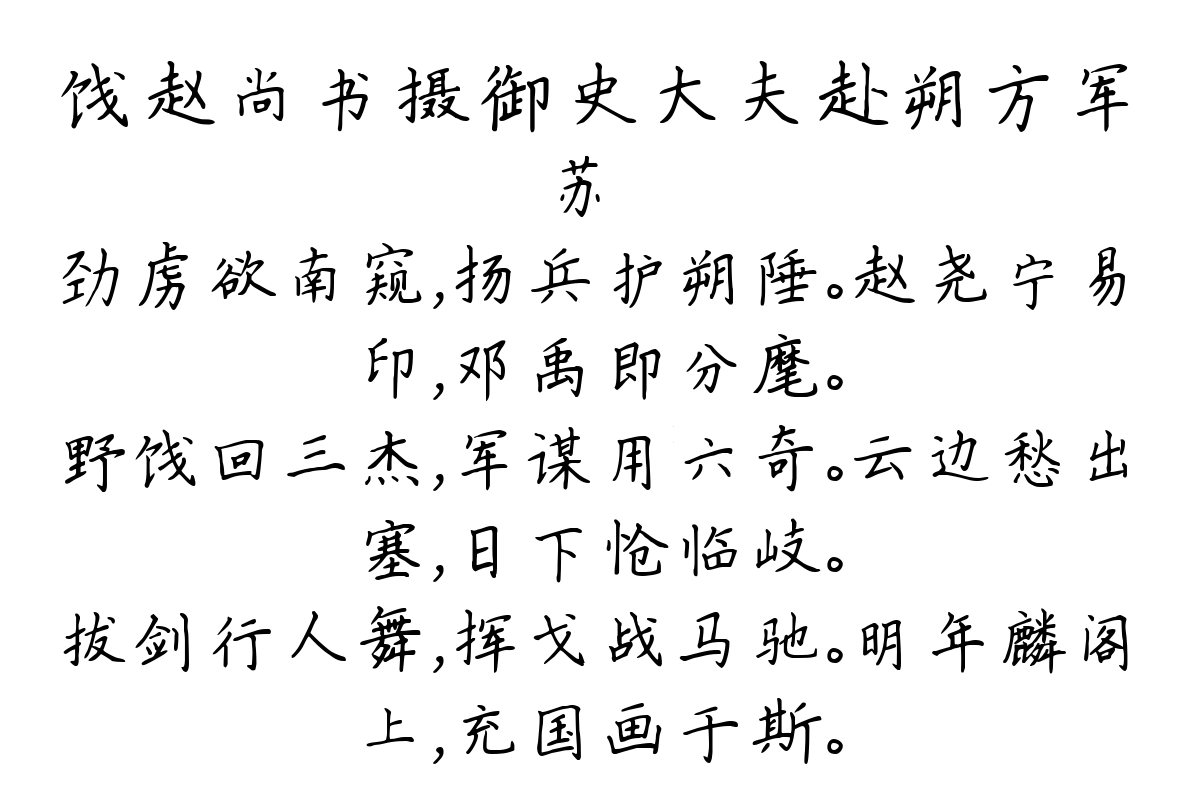 饯赵尚书摄御史大夫赴朔方军
苏
劲虏欲南窥,扬兵护朔陲。赵尧宁易
印,邓禹即分麾。
野饯回三杰,军谋用六奇。云边愁出
塞,日下怆临岐。
拔剑行人舞,挥戈战马驰。明年麟阁
上,充国画于斯。